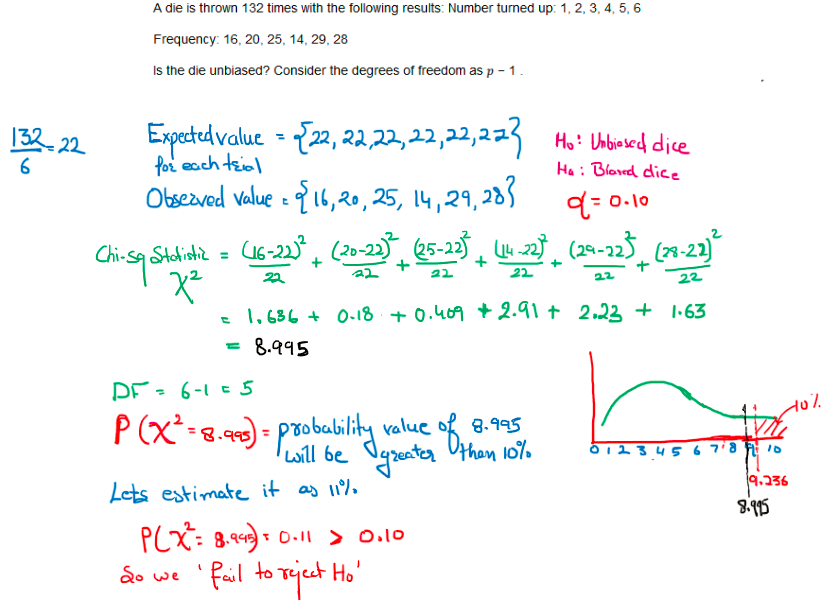 A die is thrown 132 times with the following results: Number turned up: 1, 2, 3, 4, 5, 6
Frequency: 16, 20, 25, 14, 29, 28
Is the die unbiased? Consider the degrees of freedom as p − 1 .
132/6 = 22
Expected value = {22, 22, 22, 22, 22, 22}
for each trial
Observed value = {16, 20, 25, 14, 29, 28}
H₀: Unbiased dice
Ha: Biased dice
α = 0.10
Chi-sq Statistic χ² = (16-22)²/22 + (20-22)²/22 + (25-22)²/22 + (14-22)²/22 + (29-22)²/22 + (28-22)²/22
= 1.636 + 0.18 + 0.409 + 2.91 + 2.23 + 1.63
= 8.995
DF = 6-1 = 5
P(χ² = 8.995) = probability value of 8.995
will be greater than 10%
Lets estimate it as 11%.
P(χ² = 8.995) = 0.11 > 0.10
So we 'fail to reject H₀'
10%
0 1 2 3 4 5 6 7 8 9 10
9.236
8.995